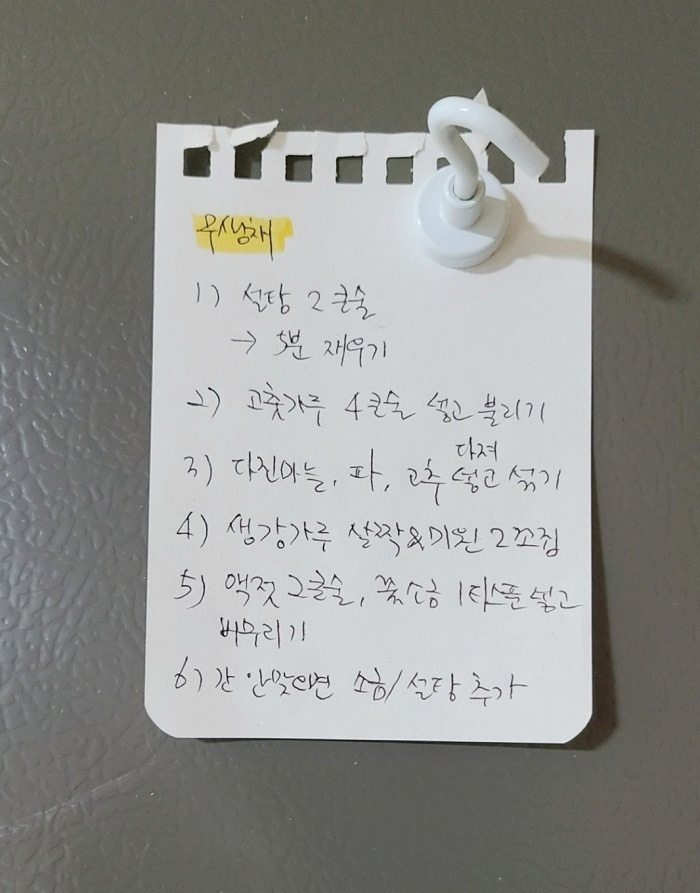 무생채
1) 설탕 2큰술
→ 5분 재우기
2) 고춧가루 4큰술 넣고 불리기
3) 다진마늘, 파, 고추 다져 넣고 섞기
4) 생강가루 살짝&미원 2꼬집
5) 액젓 2큰술, 꽃소금 1티스푼 넣고
버무리기
6) 간 안맞으면 소금/설탕 추가